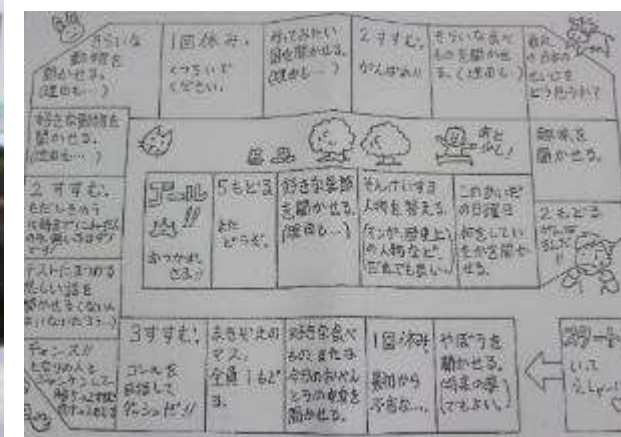 きらいな
動物を
聞かせる。
(理由も…)
1回休み。
くつろいで
ください。
行ってみたい
国を聞かせる。
(理由も…)
2すすむ。
がんばれ!!
きらいな食べ
ものを聞かせ
る。(理由も…)
最近
の日本の
せいじを
どう思うか?
好きな動物を
聞かせる。
(理由も…)
趣味を
聞かせる。
あと
少し!
2すすむ。
ただしきのう
ゴール
!!
おつかれ
さま!!
5もどる
また
どうぞ。
好きな季節
を聞かせる。
(理由も…)
そんけいする
人物を答える。
(マンガ、歴史上
の人物など、
だれでも良い…)
このあいだ
の日曜日
何をしてい
たかを聞か
せる。
2もどる
テストにまつわる
悲しい話を
チャンス!!
となりの人と
ジャンケンして
3すすむ!
ゴールを
目指して
ダッシュだ!!
まきぞえの
マス。
全員1もど
る。
好きな食べ
ものまたは
今日のおべん
とうの中身を
聞かせる。
1回休み
最初から
不吉な…。
やぼうを
聞かせる。
(将来の夢
でもよい。)
スタート
いって
らっしゃ〜い